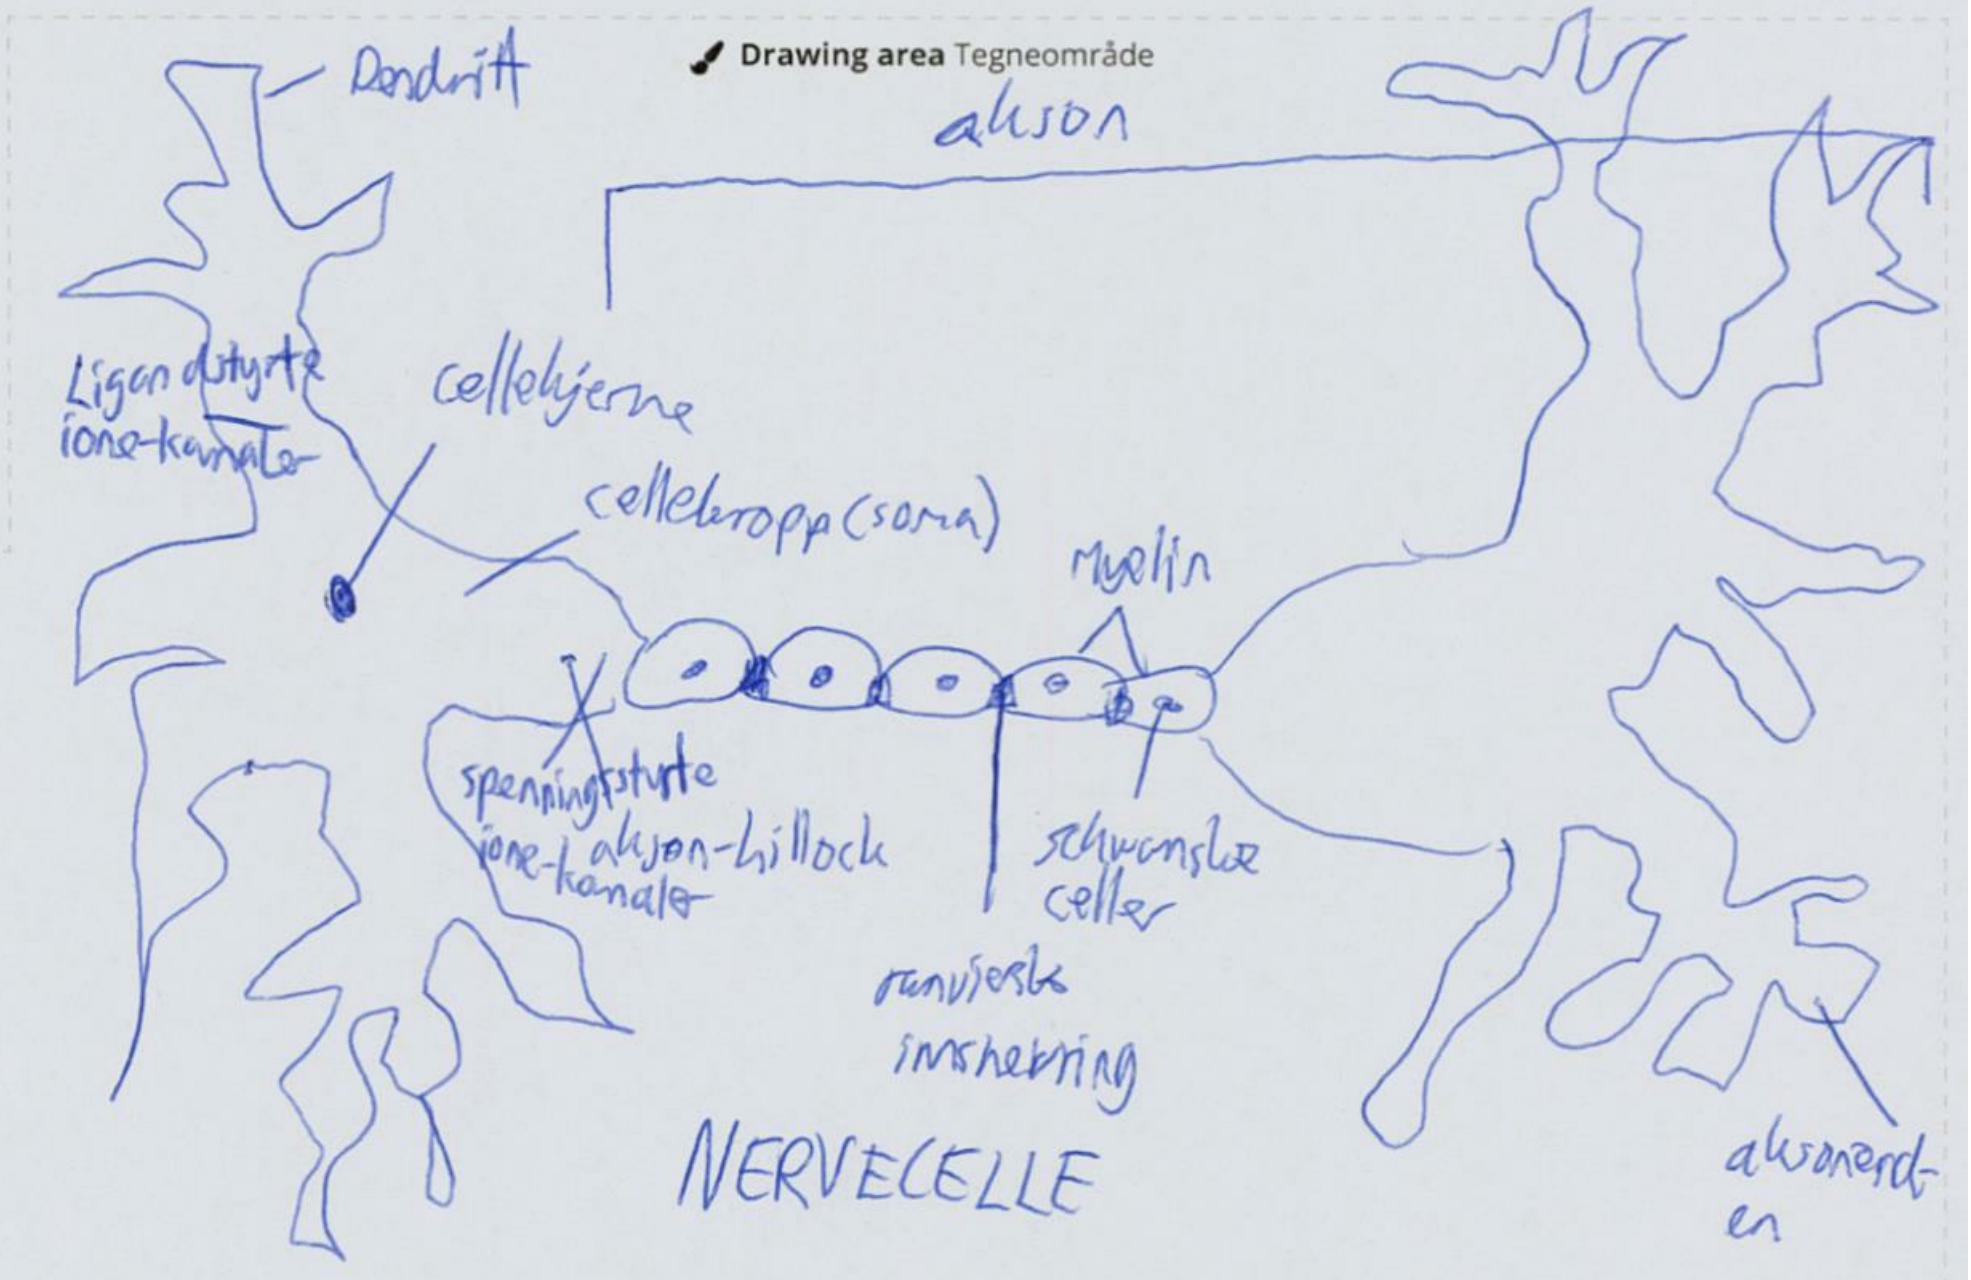 Drawing area Tegneområde
Dendritt
akson
Ligandstyrte
ione-kanaler
cellekjerne
cellekropp (soma)
Myelin
spenningsstyrte
ione-kanaler
akson-hillock
schwanske
celler
ranvierske
innsnevring
NERVECELLE
aksonend-
en